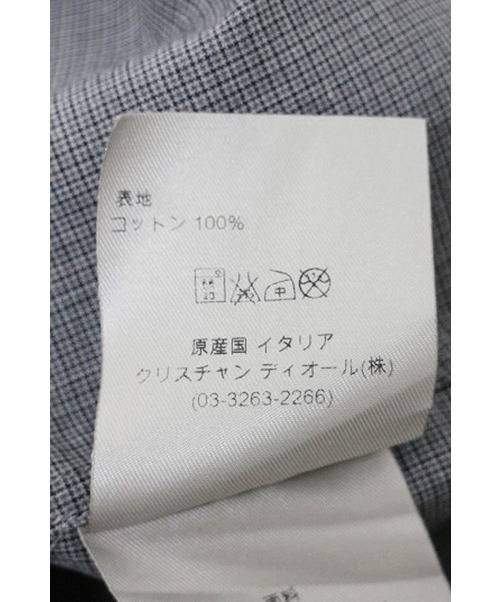 表地
コットン 100%
中
原産国 イタリア
クリスチャン ディオール(株)
(03-3263-2266)